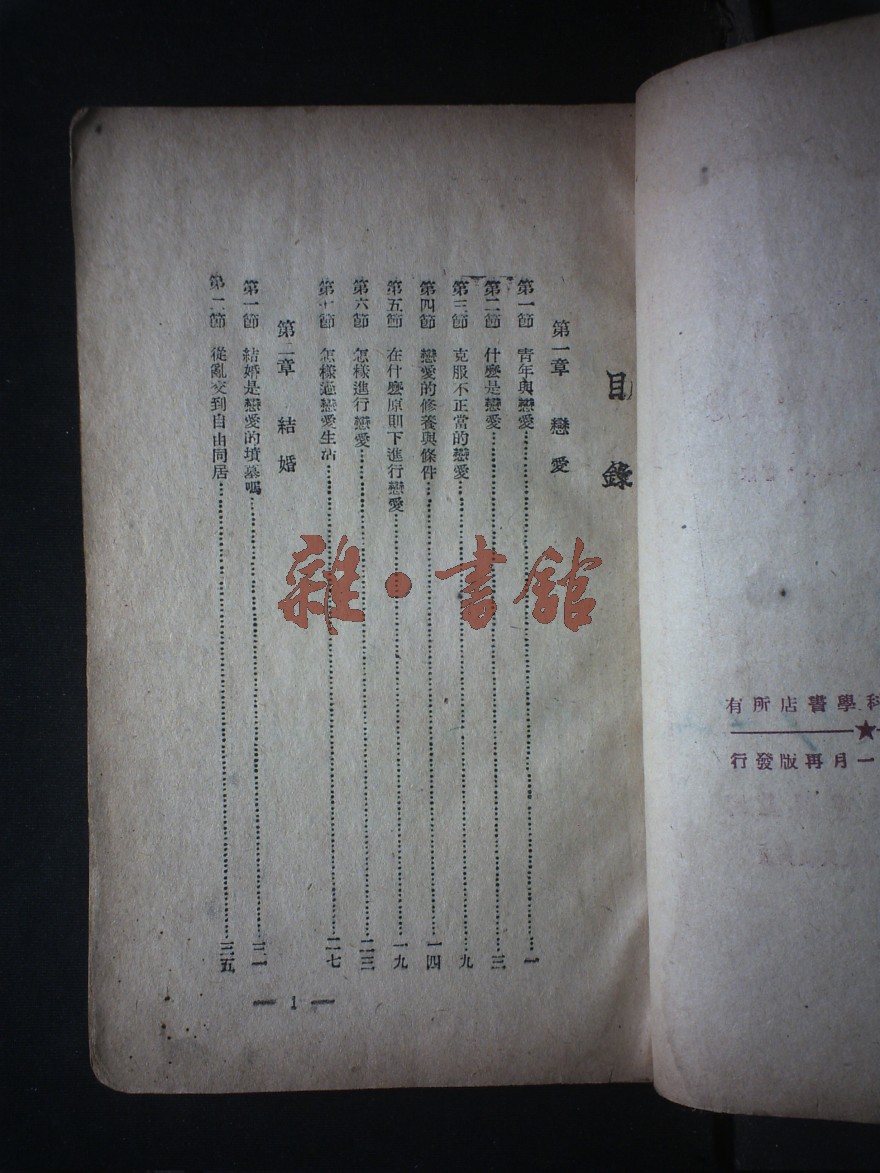 目錄
第一章 戀愛
第一節 青年與戀愛……一
第二節 什麼是戀愛……三
第三節 克服不正當的戀愛……九
第四節 戀愛的修養與條件……一四
第五節 在什麼原則下進行戀愛……一九
第六節 怎樣進行戀愛……二三
第七節 怎樣過戀愛生活……二七
第二章 結婚
第一節 結婚是戀愛的墳墓嗎……三一
第二節 從亂交到自由同居……三五
— 1 —
雜·書館
有所店書學科
行發版再月一